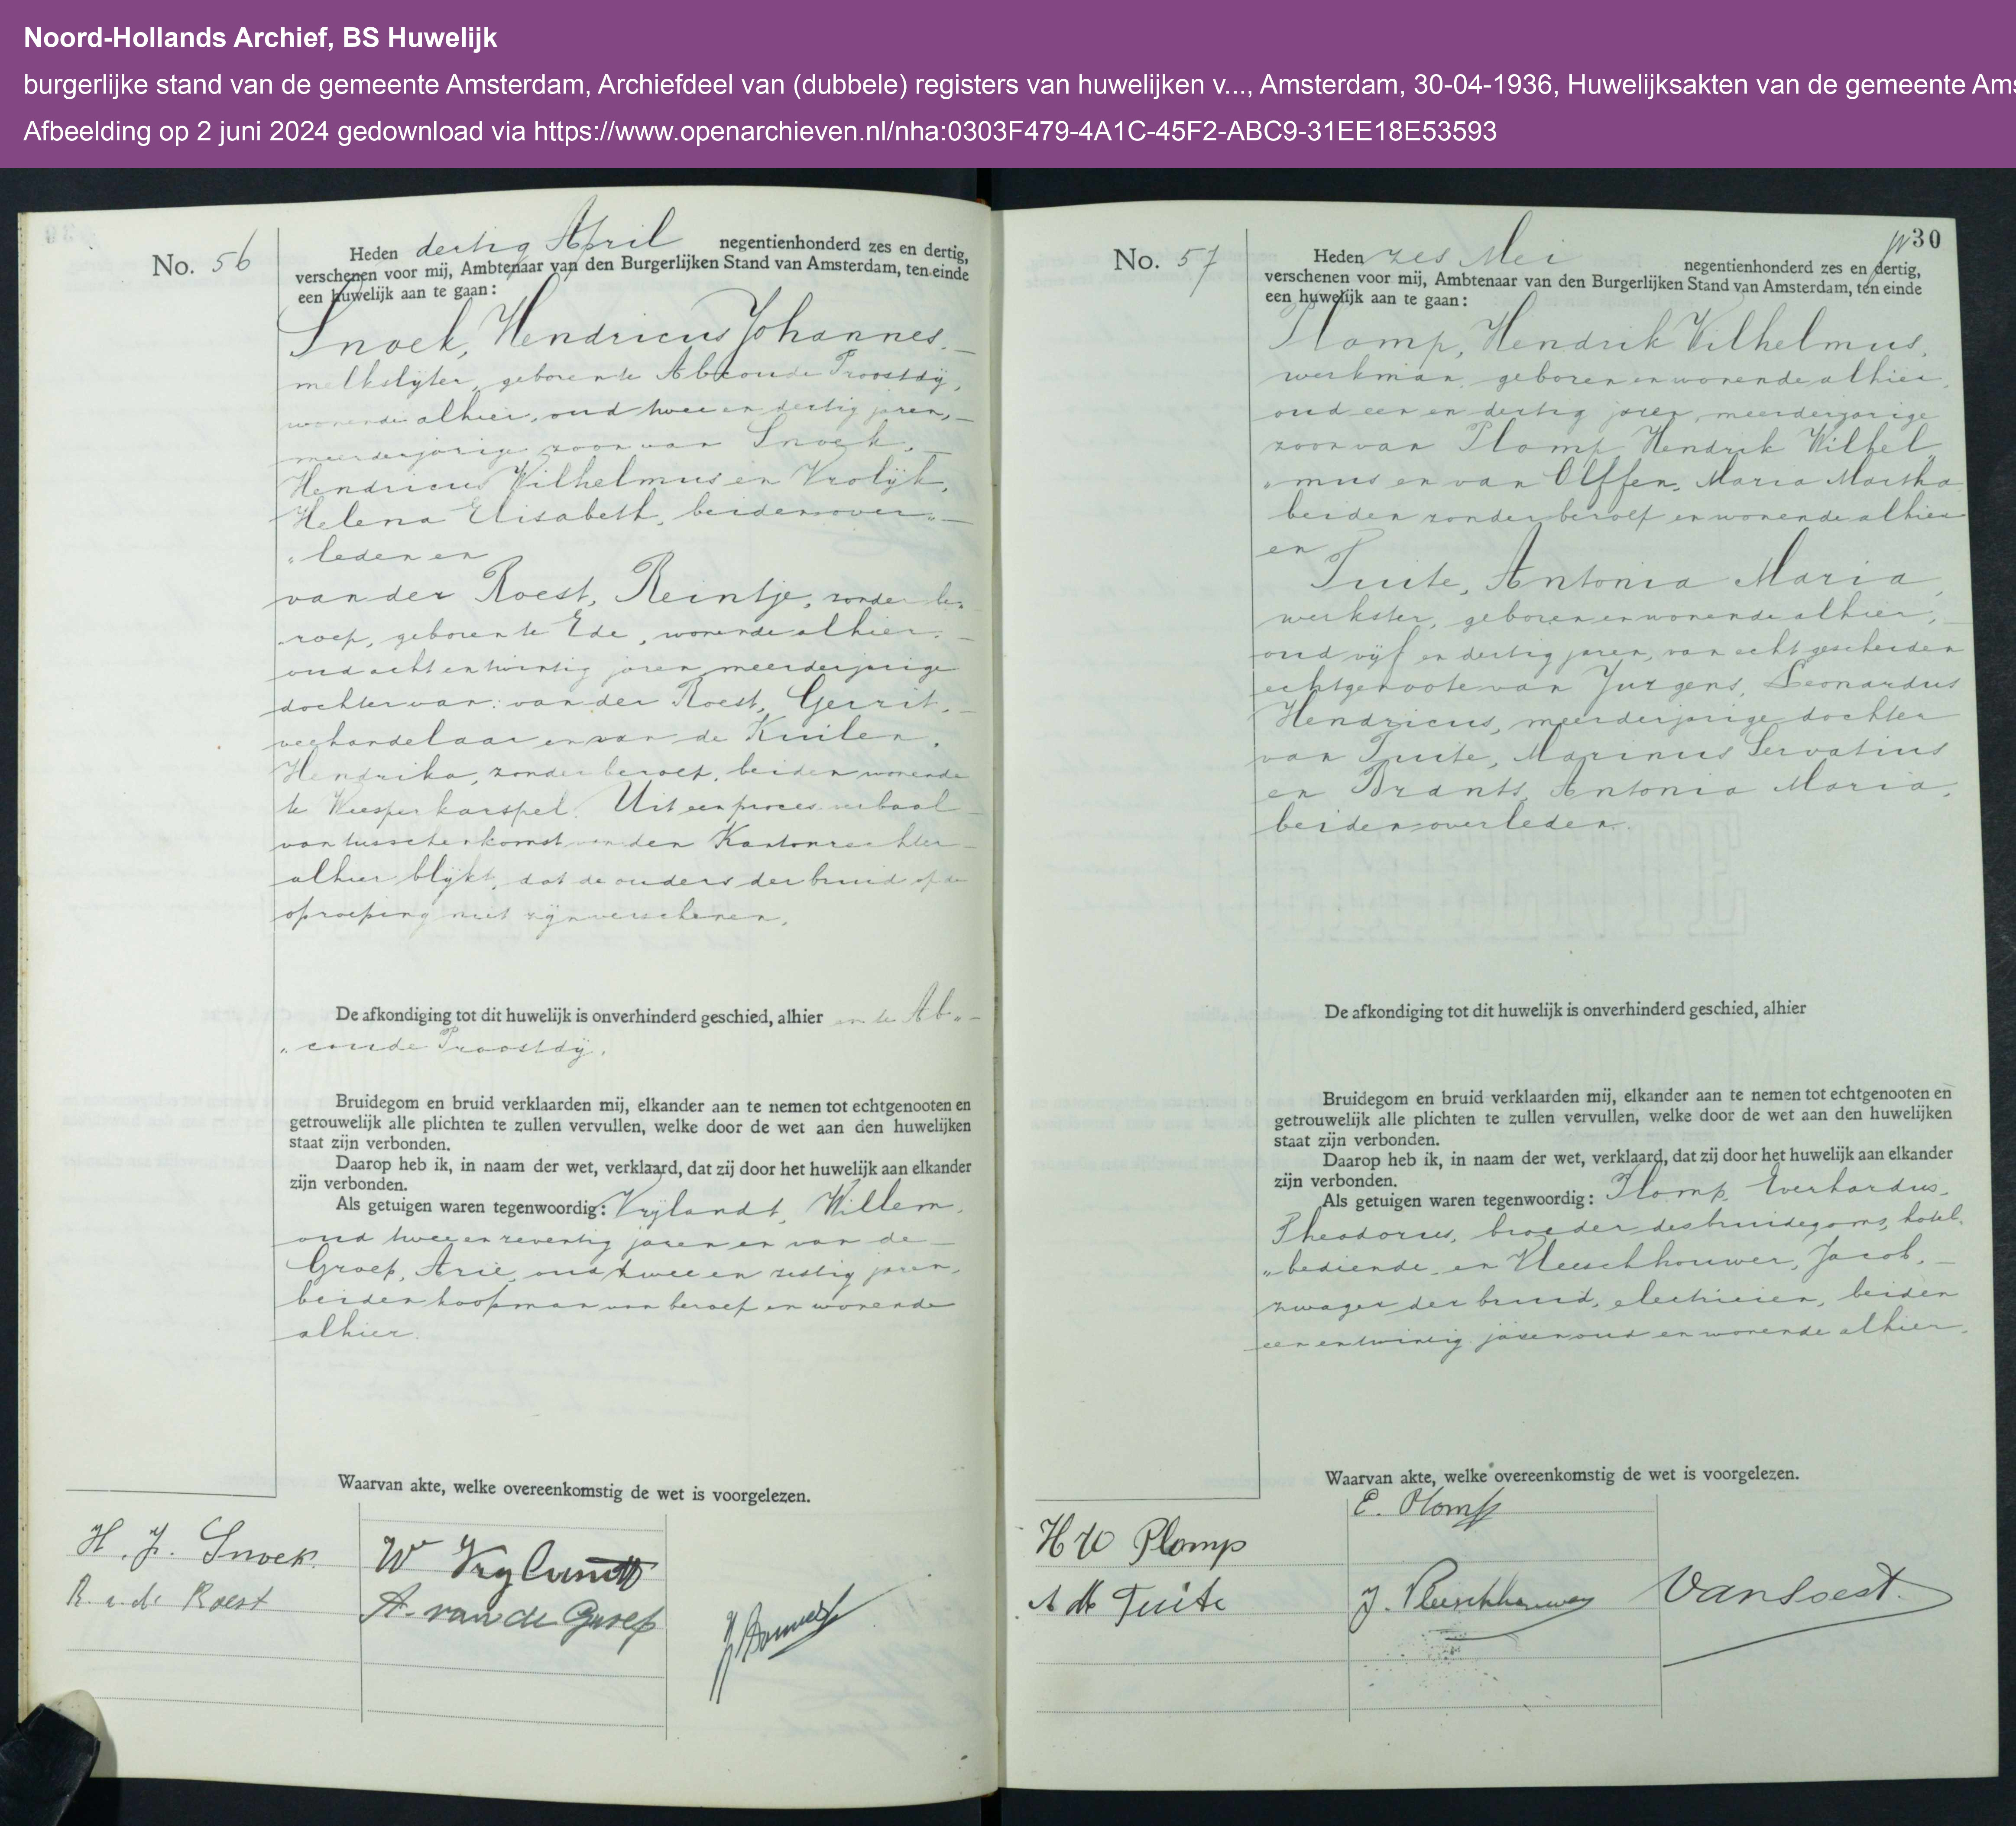 Noord-Hollands Archief, BS Huwelijk
burgerlijke stand van de gemeente Amsterdam, Archiefdeel van (dubbele) registers van huwelijken v..., Amsterdam, 30-04-1936, Huwelijksakten van de gemeente Ams
Afbeelding op 2 juni 2024 gedownload via https://www.openarchieven.nl/nha:0303F479-4A1C-45F2-ABC9-31EE18E53593
No. 56
Heden dertig April negentienhonderd zes en dertig,
verschenen voor mij, Ambtenaar van den Burgerlijken Stand van Amsterdam, ten einde
een huwelijk aan te gaan:
Snoek, Hendricus Johannes,
melkslyter, geboren te Abcoude Proostdÿ,
wonende alhier, oud twee en dertig jaren,
meerderjarige zoon van Snoek,
Hendricus Wilhelmus en Vrolÿk,
Helena Elisabeth, beiden over„
„leden en
van der Roest, Reintje, zonder be„
„roep, geboren te Ede, wonende alhier,
oud acht en twintig jaren meerderjarige
dochter van: van der Roest, Gerrit,
veehandelaar en van de Kuilen,
Hendrika, zonder beroep, beiden wonende
te Weesperkarspel. Uit een proces verbaal
van tusschenkomst van den Kantonrechter
alhier blÿkt, dat de ouders der bruid op de
oproeping niet zÿn verschenen.
De afkondiging tot dit huwelijk is onverhinderd geschied, alhier en te Ab„
„coude Proostdÿ.
Bruidegom en bruid verklaarden mij, elkander aan te nemen tot echtgenooten en
getrouwelijk alle plichten te zullen vervullen, welke door de wet aan den huwelijken
staat zijn verbonden.
Daarop heb ik, in naam der wet, verklaard, dat zij door het huwelijk aan elkander
zijn verbonden.
Als getuigen waren tegenwoordig: Vrÿlandt, Willem,
oud twee en zeventig jaren en van de
Groep, Arie, oud twee en zestig jaren,
beiden koopman van beroep en wonende
alhier.
Waarvan akte, welke overeenkomstig de wet is voorgelezen.
H. J. Snoek.
R. v. d. Roest
W Vrylandt
A. van de Groep
30
No. 57
Heden zes Mei negentienhonderd zes en dertig,
verschenen voor mij, Ambtenaar van den Burgerlijken Stand van Amsterdam, ten einde
een huwelijk aan te gaan:
Plomp, Hendrik Wilhelmus,
werkman, geboren en wonende alhier,
oud een en dertig jaren, meerderjarige
zoon van Plomp, Hendrik Wilhel„
„mus en van Olffen, Maria Martha
beiden zonder beroep en wonende alhier
en
Tuite, Antonia Maria,
werkster, geboren en wonende alhier,
oud vÿf en dertig jaren, van echt gescheiden
echtgenoote van Jurgens, Leonardus
Hendricus, meerderjarige dochter
van Tuite, Marinus Servatius
en Brants, Antonia Maria,
beiden overleden.
De afkondiging tot dit huwelijk is onverhinderd geschied, alhier
Bruidegom en bruid verklaarden mij, elkander aan te nemen tot echtgenooten en
getrouwelijk alle plichten te zullen vervullen, welke door de wet aan den huwelijken
staat zijn verbonden.
Daarop heb ik, in naam der wet, verklaard, dat zij door het huwelijk aan elkander
zijn verbonden.
Als getuigen waren tegenwoordig: Plomp, Everhardus
Theodorus, broeder des bruidegoms, hotel„
„bediende en Vleeschhouwer, Jacob,
zwager der bruid, electricien, beiden
een en twintig jaren oud en wonende alhier.
Waarvan akte, welke overeenkomstig de wet is voorgelezen.
H W Plomp
A M Tuite
E. Plomp
J. Vleeschhouwer
Van Soest.